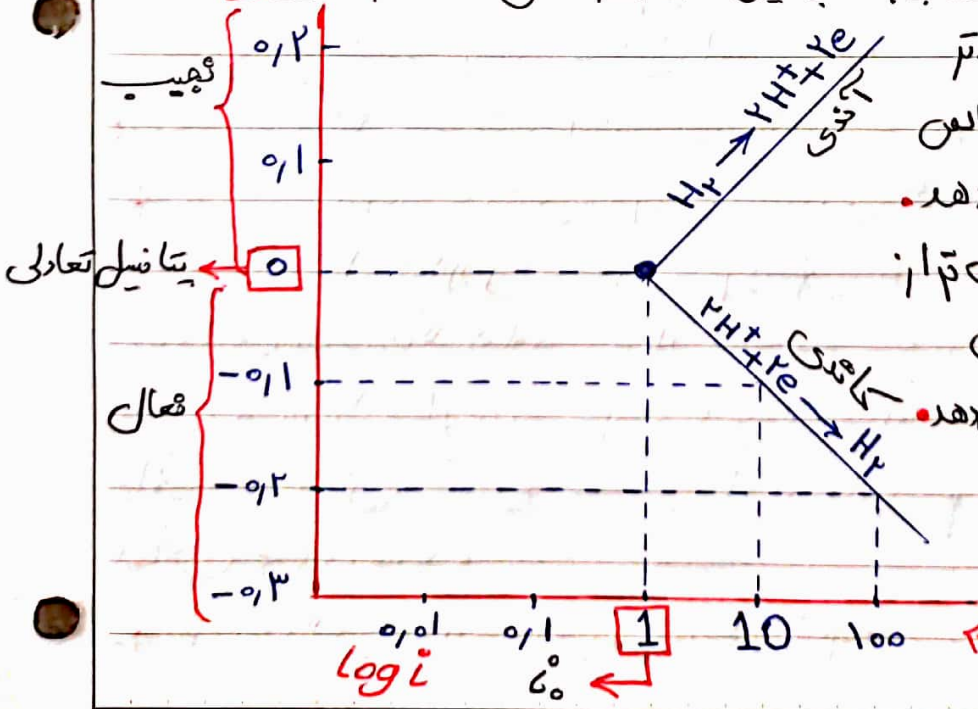 ۰٫۲
نجیب
۰٫۱
پتانسیل تعادلی
۰
فعال
-۰٫۱
-۰٫۲
-۰٫۳
H۲ → ۲H+ + ۲e
آندی
۲H+ + ۲e → H۲
کاتدی
تر از
۰٫۰۱ ۰٫۱ 1 10 ۱۰۰
log i i۰